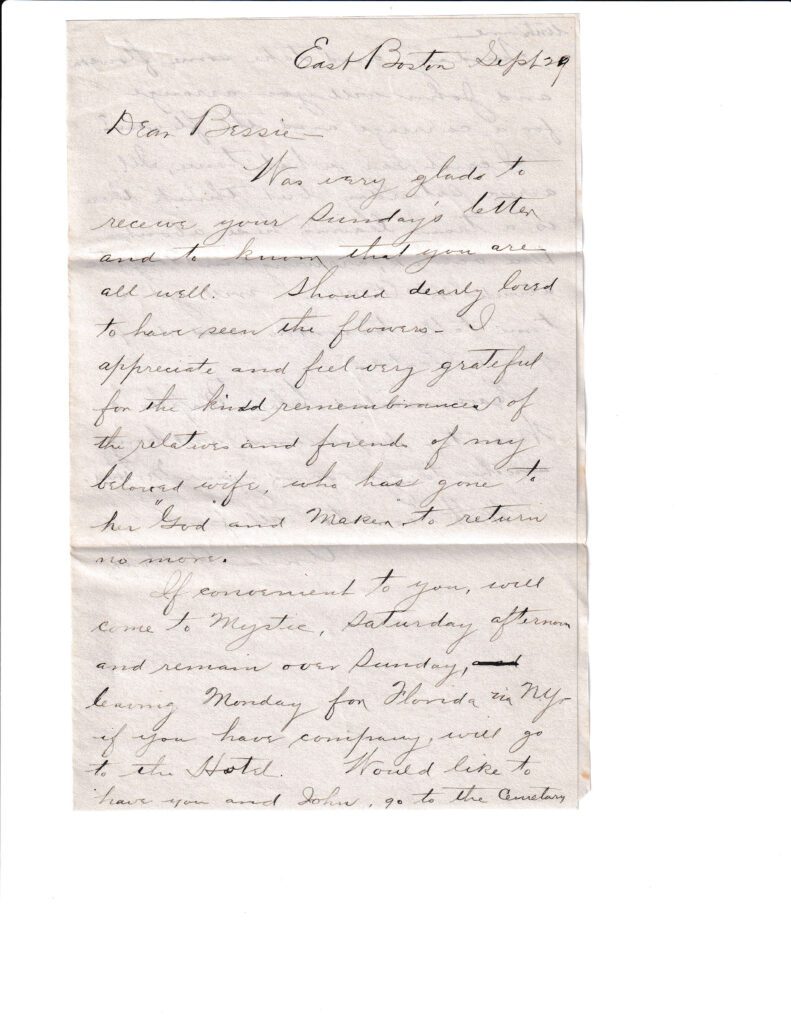 East Boston Sept 29
Dear Bessie—
Was very glad to
receive your Sunday's letter
and to know that you are
all well. Should dearly loved
to have seen the flowers— I
appreciate and feel very grateful
for the kind remembrances of
the relatives and friends of my
beloved wife, who has gone to
her "God" and "Maker" to return
no more.
If convenient to you, will
come to Mystic, Saturday afternoon
and remain over Sunday,
leaving Monday for Florida via N.Y.
if you have company, will go
to the Hotel. Would like to
have you and John, go to the Cemetary